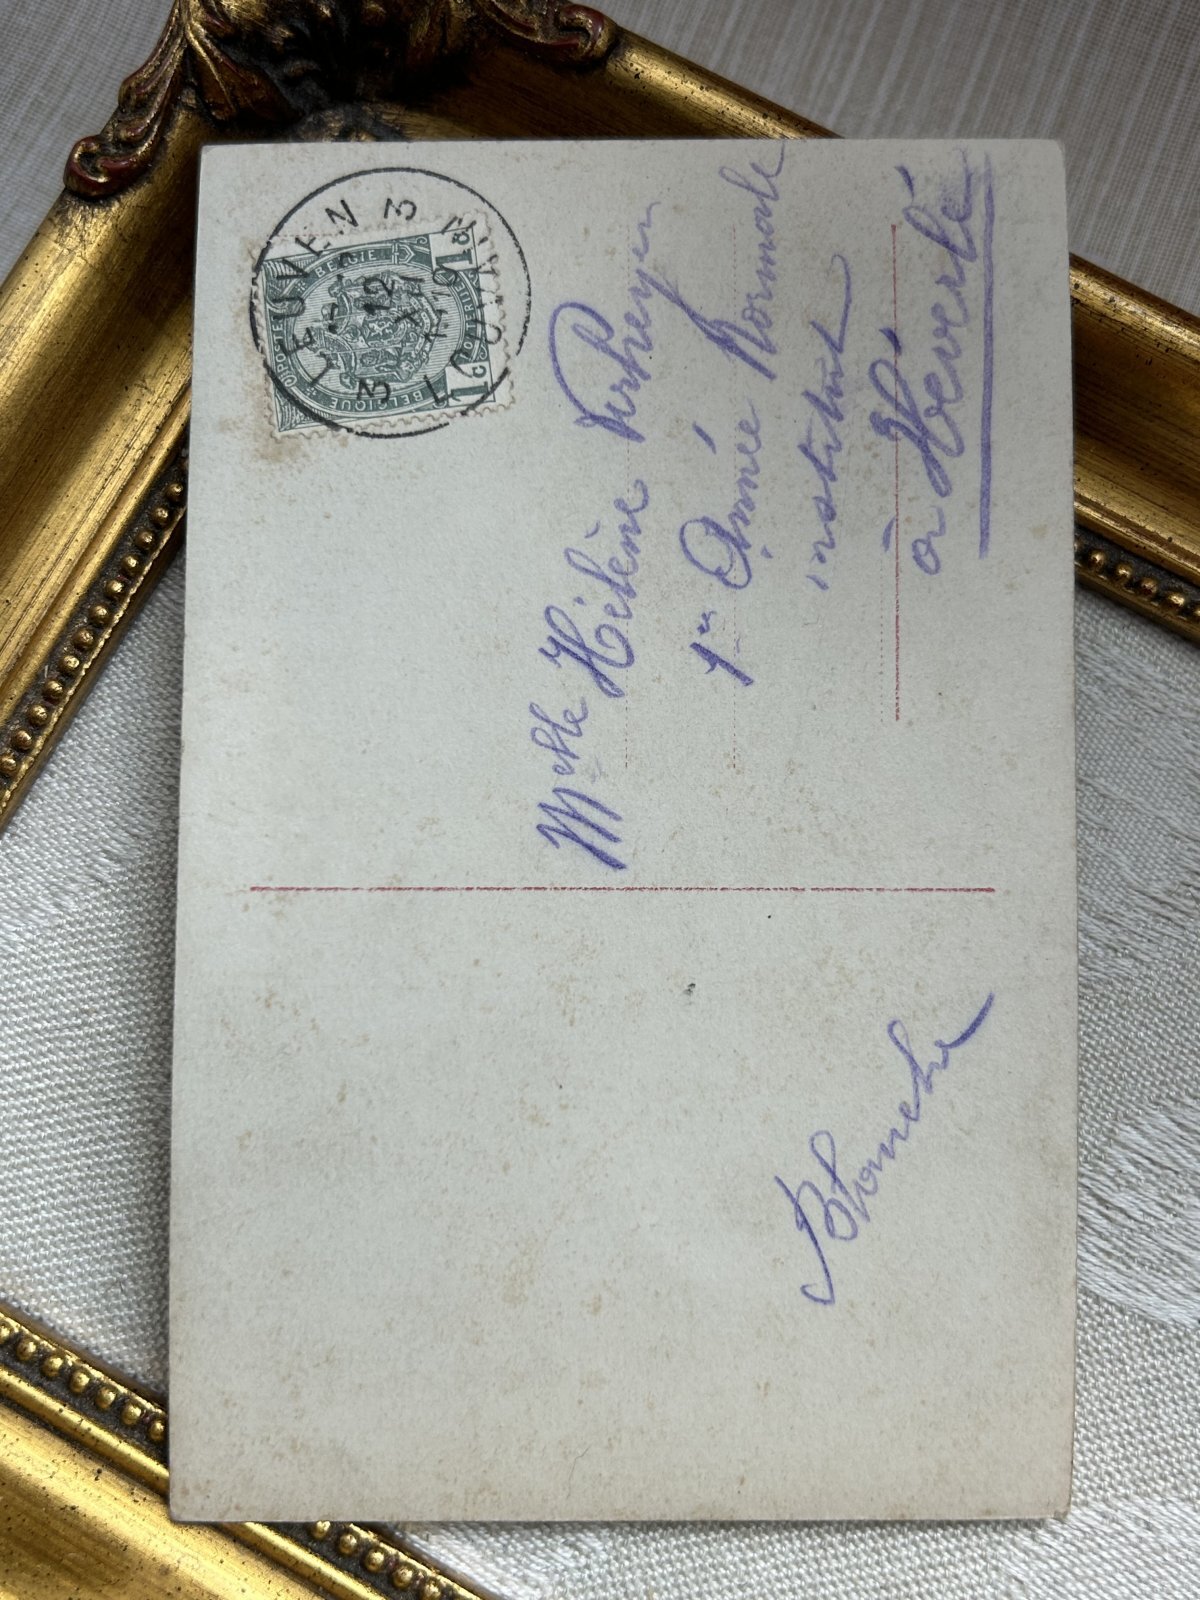 LEUVEN
3 3
12
XII
LOUVAIN
BELGIE
BELGIQUE
1c 1c
Melle Hélène Verheyen
1re Année Normale
institut
à Héverlé
Blanche